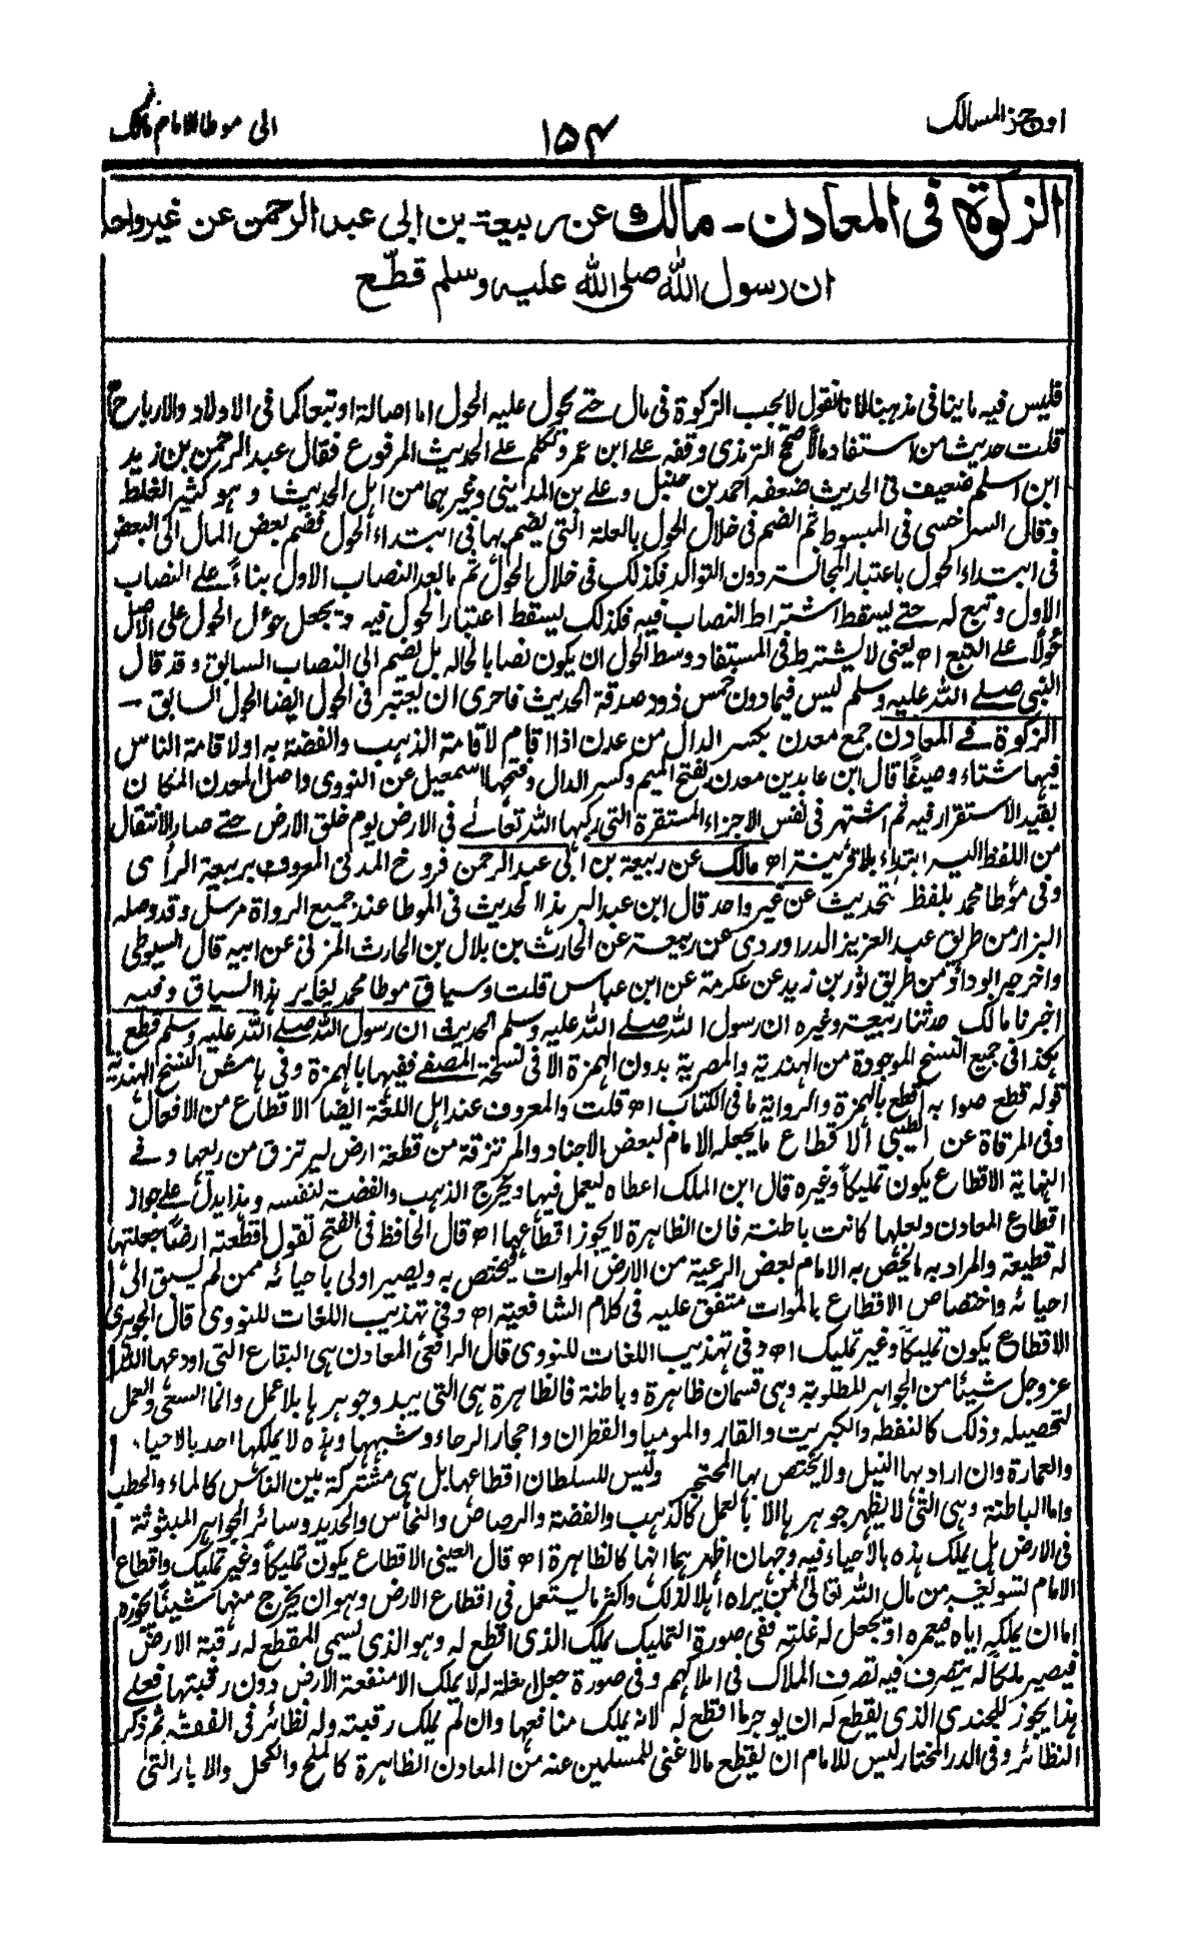 اوجز المسالك
١٥٤
الى موطا للامام مالك
الزكوة فى المعادن ـ مالك عن ربيعة بن ابى عبد الرحمن عن غير واحد
ان رسول الله صلى الله عليه وسلم قطّع
فليس فيه ما ينافى مذهبنا لانا نقول لا يجب الزكوة فى مال حتے يحول عليه الحول اما اصالة او تبعا كما فى الاولاد والارباح اھ
قلت حديث من استفاد مالاً صحح الترمذى وقفه علے ابن عمر وتكلم علے الحديث المرفوع فقال عبد الرحمن بن زيد
ابن اسلم ضعيف فى الحديث ضعفه احمد بن حنبل وعلے بن المدينى وغيرهما من اهل الحديث وهو كثير الغلط
وقال السرخسى فى المبسوط ثم الضم فى خلال الحول بالعلة التى يضم بها فى ابتداء الحول فضم بعض المال الى البعض
فى ابتداء الحول باعتبار المجانسة دون التوالد فكذلك فى خلال الحول ثم ما بعد النصاب الاول بناءً علے النصاب
الاول وتبع له حتے يسقط اشتراط النصاب فيه فكذلك يسقط اعتبار الحول فيه ويجعل حولان الحول على الاصل
حولاً علے التبع اھ يعنى لا يشترط فى المستفاد وسط الحول ان يكون نصابا بحاله بل يضم الى النصاب السابق وقد قال
النبى صلے الله عليه وسلم ليس فيما دون خمس ذود صدقة الحديث فاحرى ان يعتبر فى الحول ايضا الحول السابق ـ
الزكوة فے المعادن جمع معدن بكسر الدال من عدن اذا اقام لاقامة الذهب والفضة به او لاقامة الناس
فيها شتاء وصيفًا قال ابن عابدين معدن بفتح الميم وكسر الدال وفتحها اسمعيل عن النووى واصل المعدن المكان
بقيد الاستقرار فيه ثم اشتهر فى نفس الاجزاء المستقرة التى ركبها الله تعالے فى الارض يوم خلق الارض حتے صار الانتقال
من اللفظ اليه ابتداء بلا قرينة اھ مالك عن ربيعة بن ابى عبد الرحمن فروخ المدنى المعروف بربيعة الرأى
وفى مؤطا محمد بلفظ التحديث عن غير واحد قال ابن عبد البر هذا الحديث فى الموطا عند جميع الرواة مرسل وقد وصله
البزار من طريق عبد العزيز الدراوردى عن ربيعة عن الحارث بن بلال بن الحارث المزنى عن ابيه قال السيوطى
واخرجه ابو داؤد من طريق ثور بن زيد عن عكرمة عن ابن عباس قلت وسياق موطا محمد يغاير هذا السياق وفيه
اخبرنا مالك حدثنا ربيعة وغيره ان رسول الله صلے الله عليه وسلم الحديث ان رسول الله صلے الله عليه وسلم قطع
هكذا فى جميع النسخ الموجودة من الهندية والمصرية بدون الهمزة الا فى نسخة المصفے ففيها بالهمزة وفى هامش النسخ الهندية
قوله قطع صوابه اقطع بالهمزة والرواية ما فى الكتاب اھ قلت والمعروف عند اهل اللغة ايضا الاقطاع من الافعال
وفى المرقاة عن الطيبى الاقطاع ما يجعله الامام لبعض الاجناد والمرتزقة من قطعة ارض ليرتزق من ريعها وفے
النهاية الاقطاع يكون تمليكاً وغيره قال ابن الملك اعطاه ليعمل فيها ويخرج الذهب والفضة لنفسه وهذا يدل علے جواز
اقطاع المعادن ولعلها كانت باطنة فان الظاهرة لا يجوز اقطاعها اھ قال الحافظ فى الفتح تقول اقطعته ارضاً جعلتها
له قطيعة والمراد به ما يخص به الامام بعض الرعية من الارض الموات فيختص به ويصير اولى باحيائه ممن لم يسبق الى
احيائه واختصاص الاقطاع بالموات متفق عليه فى كلام الشافعية اھ وفى تهذيب اللغات للنووى قال الجوهرى
الاقطاع يكون تمليكاً وغير تمليك اھ وفى تهذيب اللغات للنووى قال الرافعى المعادن هى البقاع التى اودعها الله
عز وجل شيئا من الجواهر المطلوبة وهى قسمان ظاهرة وباطنة فالظاهرة هى التى يبدو جوهرها بلا عمل وانما السعى والعمل
لتحصيله وذلك كالنفط والكبريت والقار والموميا والقطران واحجار الرحاء وشبهها وهذه لا يملكها احد بالاحياء
والعمارة وان اراد بها النيل ولا يختص بها المحتجر وليس للسلطان اقطاعها بل هى مشتركة بين الناس كالماء والحطب
واما الباطنة وهى التى لا يظهر جوهرها الا بالعمل كالذهب والفضة والرصاص والنحاس والحديد وسائر الجواهر المبثوثة
فى الارض هل يملك هذه بالاحياء فيه وجهان اظهرهما انها كالظاهرة اھ قال العينى الاقطاع يكون تمليكاً وغير تمليك واقطاع
الامام تسويغه من مال الله تعالى لمن يراه اهلا لذلك واكثر ما يستعمل فى اقطاع الارض وهو ان يخرج منها شيئا يحوزه
اما ان يملكه اياه فيعمره او يجعل له غلته ففى صورة التمليك يملك الذى اقطع له وهو الذى يسمى المقطع له رقبة الارض
فيصير ملكاً له يتصرف فيه تصرف الملاك فى املاكهم وفى صورة جعل الغلة له لا يملك الا منفعة الارض دون رقبتها فعلے
هذا يجوز للجندى الذى يقطع له ان يوجر ما اقطع له لانه يملك منافعها وان لم يملك رقبته وله نظائر فى الفقه ثم ذكر
النظائر وفى الدر المختار ليس للامام ان يقطع مالا غنى للمسلمين عنه من المعادن الظاهرة كالملح والكحل والابار التى